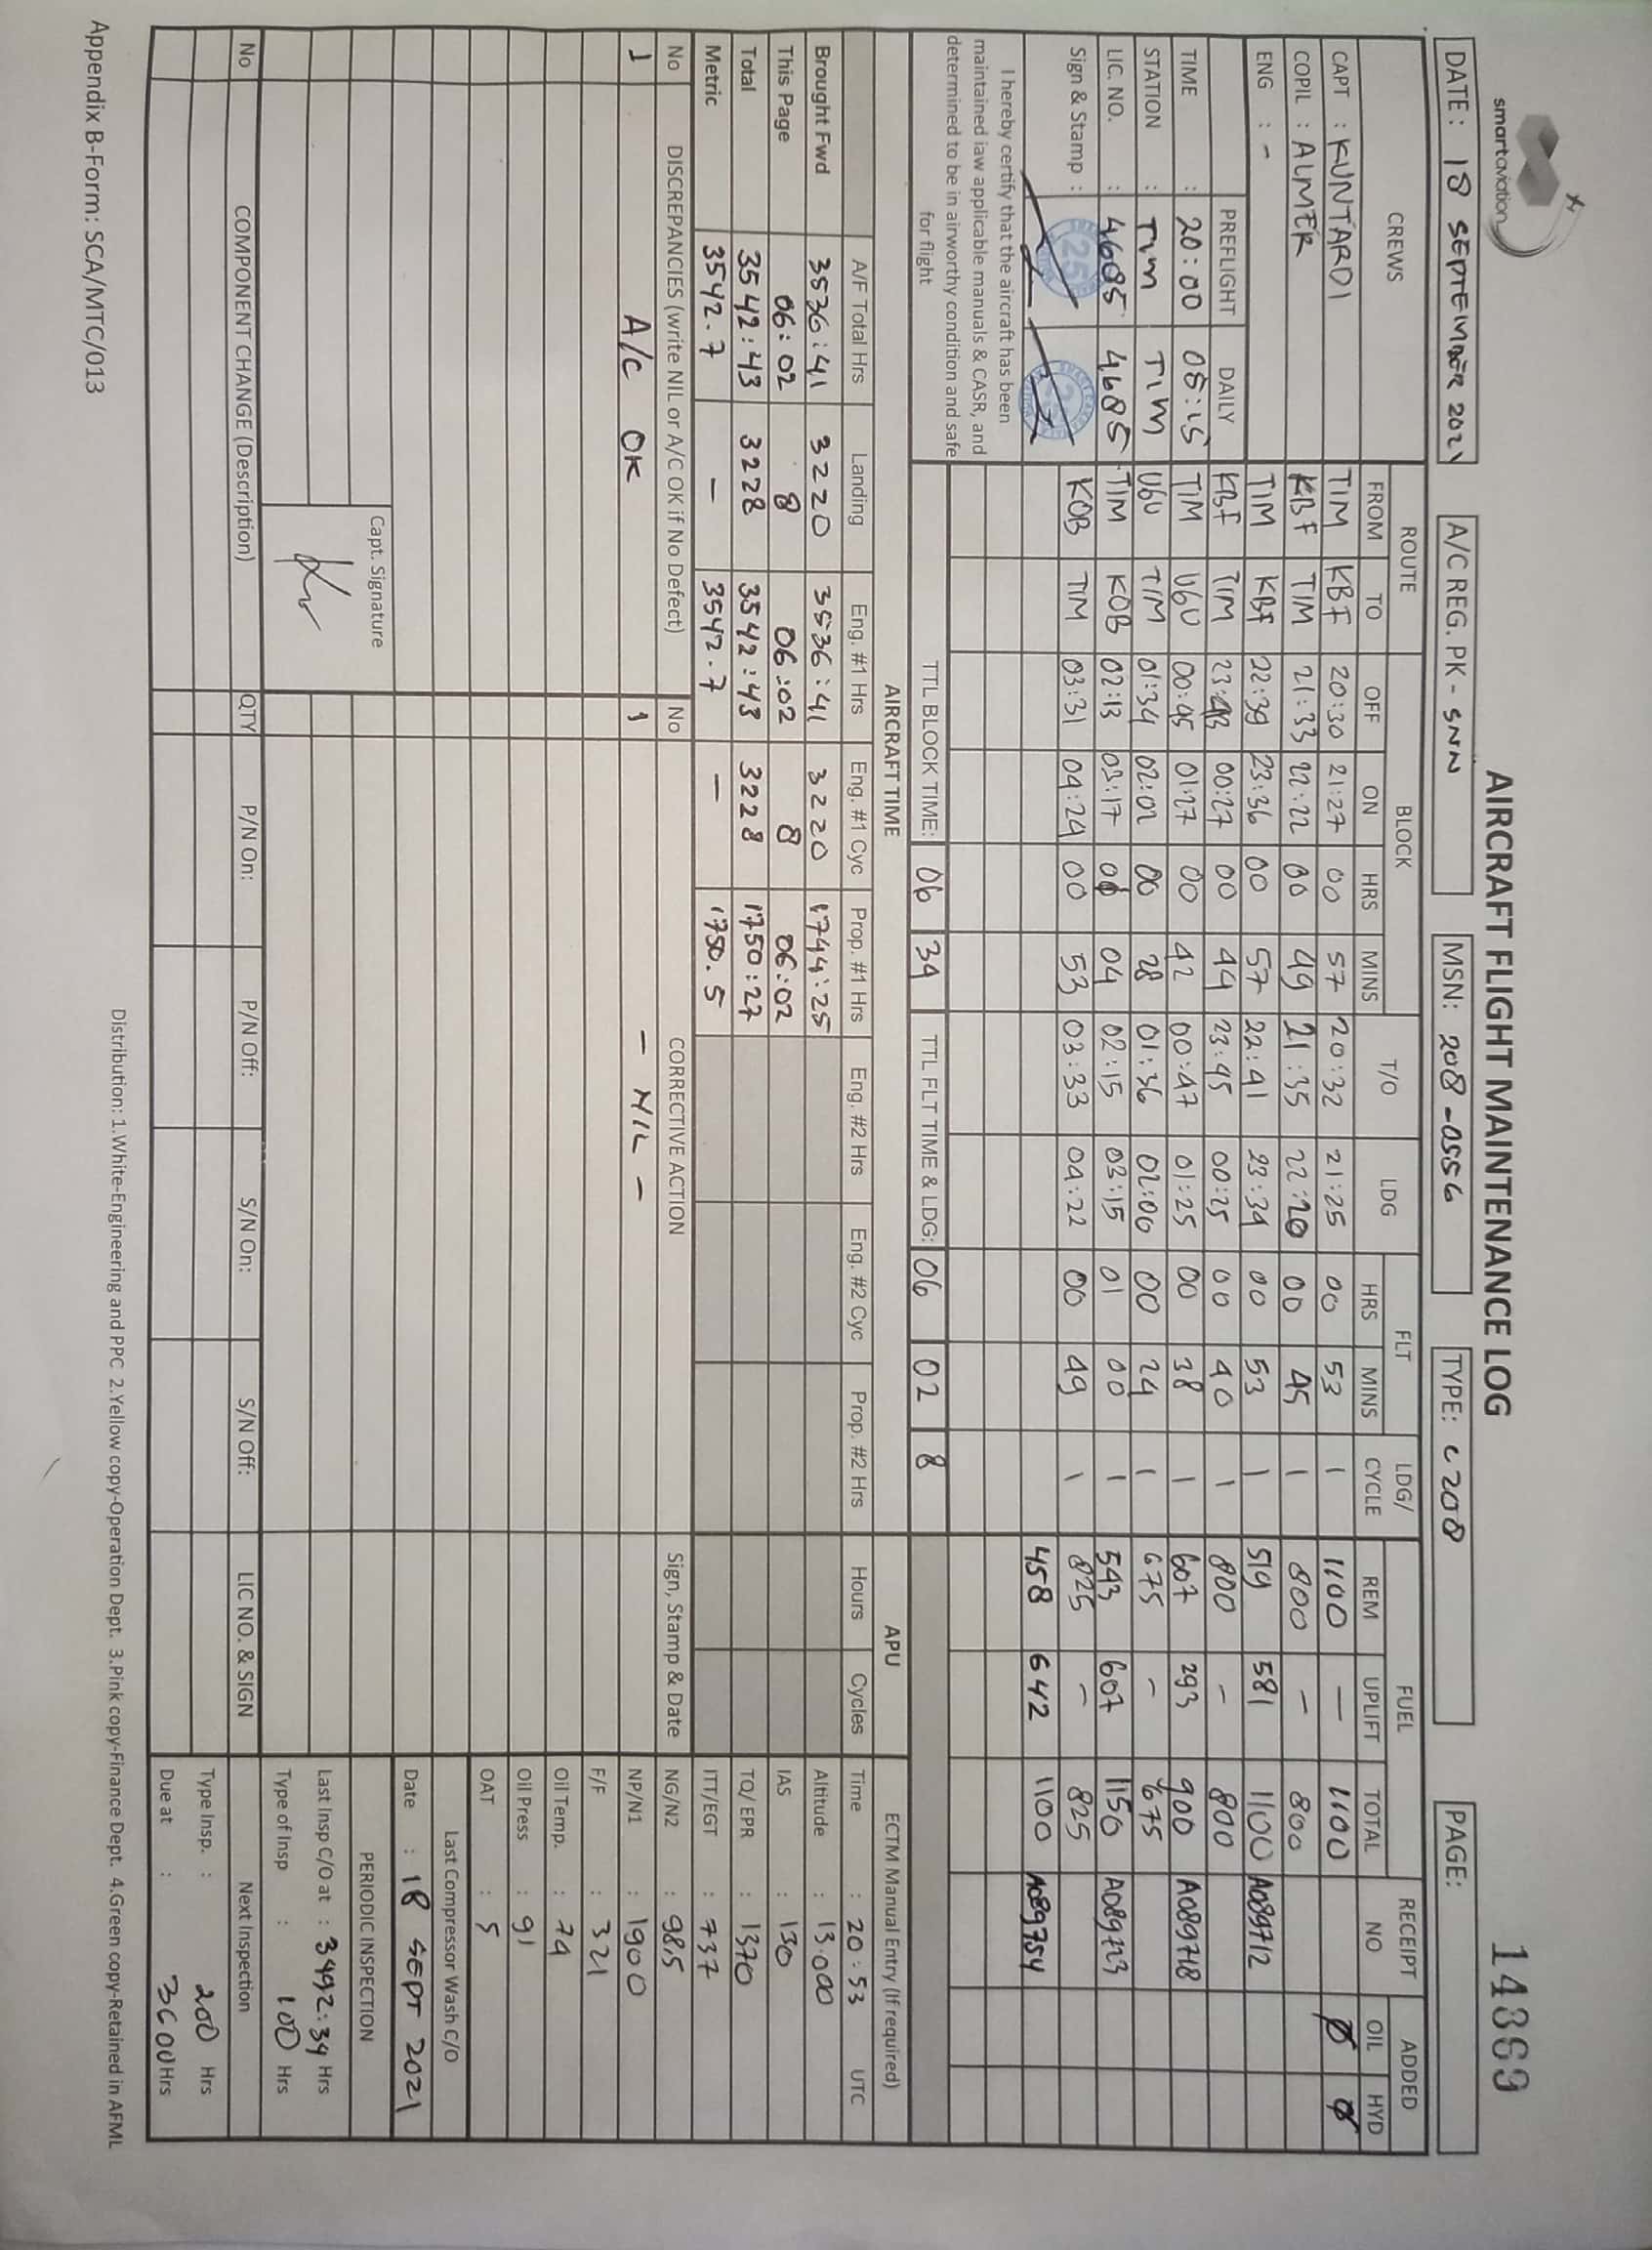 smartaviation
AIRCRAFT FLIGHT MAINTENANCE LOG
14369
DATE : 18 SEPTEMBER 2021 A/C REG. PK - SNN MSN: 208-0556 TYPE: C208 PAGE:
CREWS ROUTE BLOCK T/O LDG FLT LDG/ CYCLE FUEL RECEIPT NO ADDED
FROM TO OFF ON HRS MINS HRS MINS REM UPLIFT TOTAL OIL HYD
CAPT : KUNTARDI TIM KBF 20:30 21:27 00 57 20:32 21:25 00 53 1 1100 — 1100 Ø Ø
COPIL : ALMER KBF TIM 21:33 22:22 00 49 21:35 22:20 00 45 1 800 – 800
ENG : - TIM KBF 22:39 23:36 00 57 22:41 23:34 00 53 1 519 581 1100 A089712
PREFLIGHT DAILY KBF TIM 23:43 00:27 00 44 23:45 00:25 00 40 1 800 - 800
TIME : 20:00 08:15 TIM UGU 00:45 01:27 00 42 00:47 01:25 00 38 1 607 293 900 A089718
STATION : TIM TIM UGU TIM 01:34 02:02 00 28 01:36 02:00 00 24 1 675 - 675
LIC. NO. : 4685 4685 TIM KOB 02:13 03:17 04 02:15 03:15 01 00 1 543 607 1150 A089723
Sign & Stamp : KOB TIM 03:31 04:24 00 53 03:33 04:22 00 49 1 825 - 825
458 642 1100 A089754
I hereby certify that the aircraft has been
maintained iaw applicable manuals & CASR, and
determined to be in airworthy condition and safe
for flight
TTL BLOCK TIME: 06 34 TTL FLT TIME & LDG: 06 02 8
AIRCRAFT TIME APU ECTM Manual Entry (If required)
A/F Total Hrs Landing Eng. #1 Hrs Eng. #1 Cyc Prop. #1 Hrs Eng. #2 Hrs Eng. #2 Cyc Prop. #2 Hrs Hours Cycles Time : 20:53 UTC
Brought Fwd 3536:41 3220 3536:41 3220 1744:25 Altitude : 13.000
This Page 06:02 8 06:02 8 06:02 IAS : 130
Total 3542:43 3228 3542:43 3228 1750:27 TQ/ EPR : 1370
Metric 3542.7 — 3542.7 — 1750.5 ITT/EGT : 737
No DISCREPANCIES (write NIL or A/C OK if No Defect) No CORRECTIVE ACTION Sign, Stamp & Date NG/N2 : 98.5
1 A/C OK 1 - NIL - NP/N1 : 1900
F/F : 321
Oil Temp. : 74
Oil Press : 91
OAT : 5
Last Compressor Wash C/O
Date : 18 SEPT 2021
Capt. Signature PERIODIC INSPECTION
Last Insp C/O at : 3492:34 Hrs
Type of Insp : 100 Hrs
No COMPONENT CHANGE (Description) QTY P/N On: P/N Off: S/N On: S/N Off: LIC NO. & SIGN Next Inspection
Type Insp. : 200 Hrs
Due at : 3600 Hrs
Distribution: 1.White-Engineering and PPC 2.Yellow copy-Operation Dept. 3.Pink copy-Finance Dept. 4.Green copy-Retained in AFML
Appendix B-Form: SCA/MTC/013